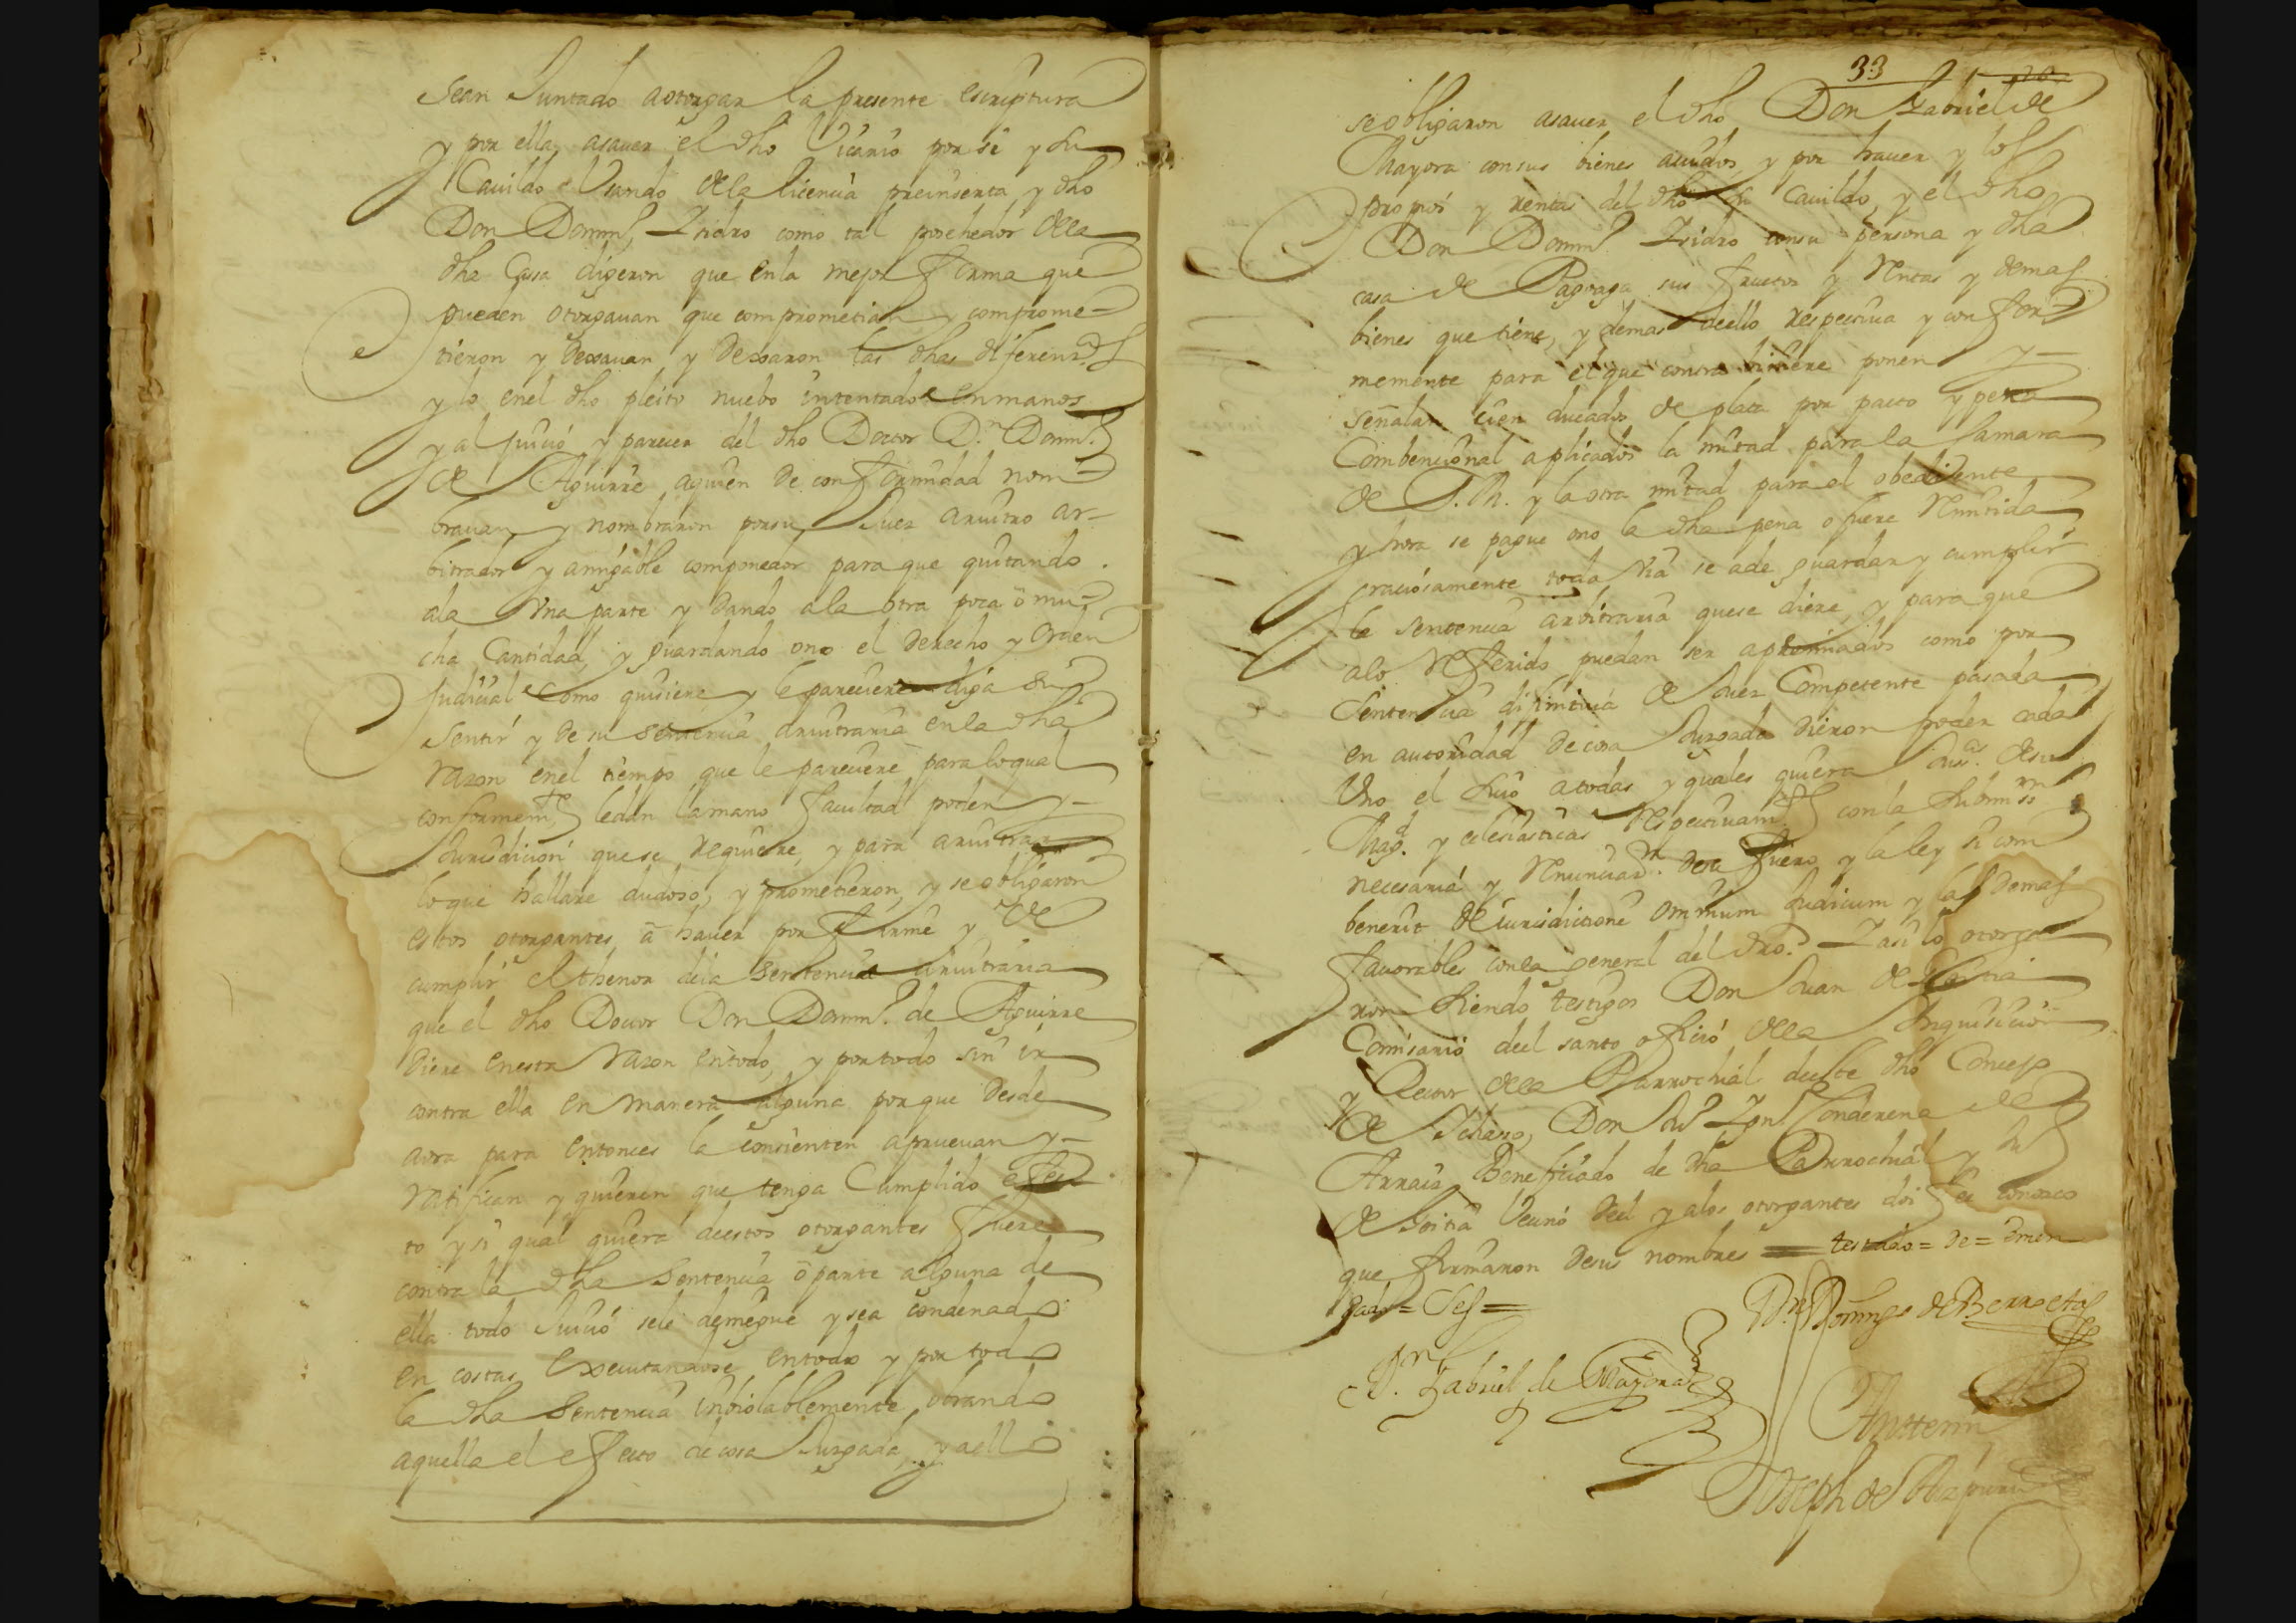 sean Juntado aotorgar la presente escriptura
y por ella, asauer el dho Vicario por si y su
Cauildo Usando dela licencia preinserta y dho
Don Domin.º Isidro como tal posehedor dela
dha Casa digeron que enla mejor forma que
pueden otorgauan que comprometian y comprome-
tieron y dexauan y dexaron las dhas diferenz.as
y lo enel dho pleito nuebo intentado en manos
y al juicio y parecer del dho Doctor D.n Domin.º
de Aguirre aquien de conformidad nom-
brauan y nombraron porsu Juez aruitro ar-
bitrador y amigable componedor para que quitando
ala Una parte y dando ala otra poca ô mu-
cha Cantidad y guardando ono el derecho y orden
Judicial como quisiere y le pareciere diga su
sentir y de su sentencia aruitraria enla dha
razon enel tiempo que le pareciere para loqual
conformem.te ledan lamano facultad poder y
Jurisdicion que se requiere, y para aruitrar
loque hallare dudoso, y prometieron, y se obligaron
estos otorgantes, â hauer por firme y de
cumplir el thenor dela sentencia aruitraria
que el dho Doctor Don Domin.º de Aguirre
diere enesta razon entodo, y portodo sin ir
contra ella en manera alguna porque desde
aora para entonces la consienten aprueuan y
ratifican y quieren que tenga Cumplido efec-
to y si qual quiera deestos otorgantes fuere
contra la dha sentencia ô parte alguna de
ella todo Juicio sele deniegue y sea condenado
en costas executandose entodo y por todo
la dha sentencia inbiolablemente, obrando
aquella el efecto de cosa Juzgada, y aello
33
se obligaron asauer el dho Don Gabriel de
Mayora consus bienes auidos y por hauer y los
propios y rentas del dho su Cauildo, y el dho
Don Domin.º Isidro consu persona y dha
casa de Pagoaga sus fructos y Rentas y demas
bienes que tiene, y demas deello respectiua y confor-
memente para el que contra biniere ponen y
señalan cien ducados de plata por pacto y pena
Combencional aplicados la mitad para la Camara
de S. M. y la otra mitad para el obediente
y hora se pague ono la dha pena o fuere Remitida
graciosamente toda Via se ade guardar y cumplir
la sentencia arbitraria quese diere, y para que
alo Referido puedan ser apremiados como por
Sentencia difinitiua de Juez Competente pasada
en autoridad de cosa Juzgada dieron poder cada
Uno el suio atodas y quales quiera Jus.as desu
Mag.d y eclesiasticas Respectiuam.te con la submis.on
necesaria y Renunciaz.on dese fuero y la ley si com
benerit de iurisdictione omnium Judicum y las demas
fauorables conla general del dro.º Iasi lo otorga
ron siendo testigos Don Juan de
Comisario del santo oficio dela Inquisicion
y Rector dela Parrochial deeste dho Concejo
de Don Ign.º
Beneficiado de dha Parrochial y
de Goitia Vecino del y alos otorgantes doi fee conozco
que firmaron desus nombres = testado = de = emen
dado = Ses =
D.n Domingo de Berroeta
D.n Gabriel de Mayora
Anttemi
Joseph de Aizpuru